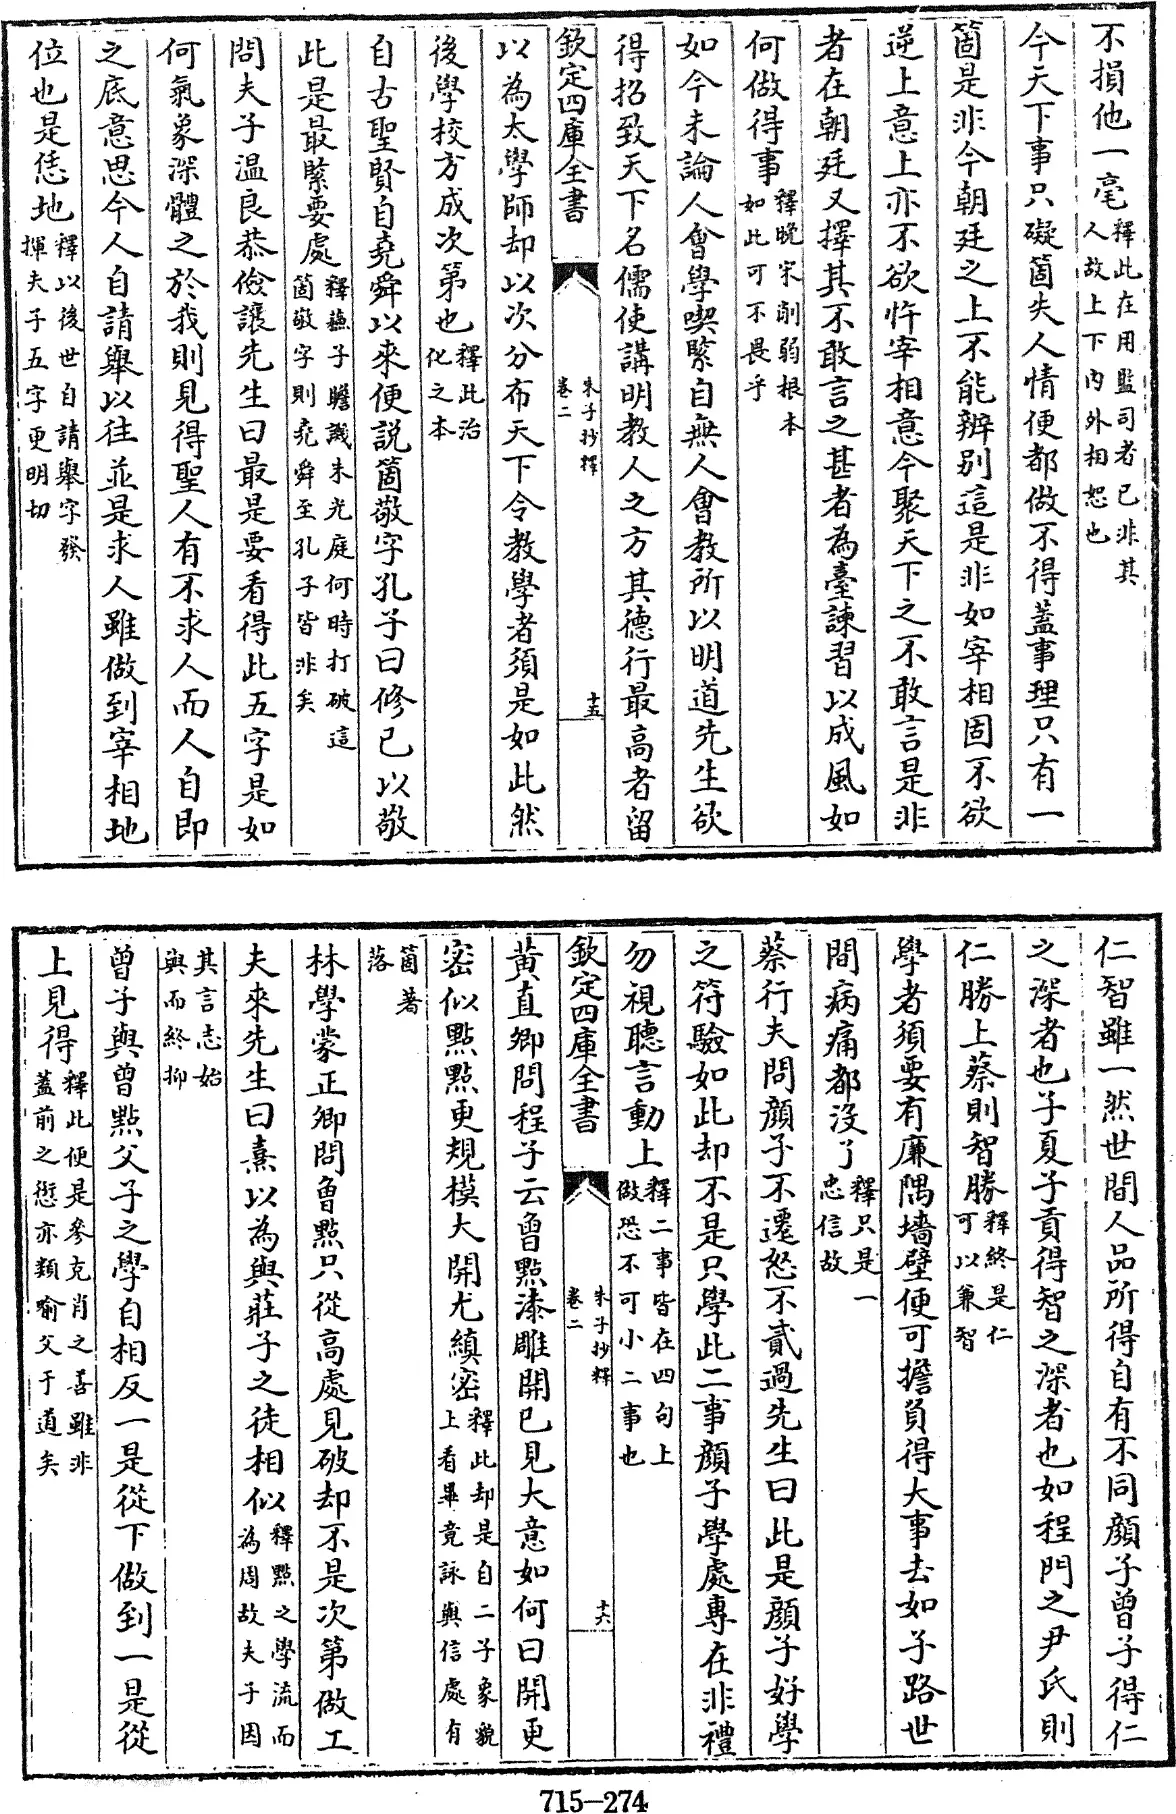 不損他一毫釋此在用監司者已非其人故上下內外相恕也
今天下事只礙箇失人情便都做不得蓋事理只有一
箇是非今朝廷之上不能辨别這是非如宰相固不欲
逆上意上亦不欲忤宰相意今聚天下之不敢言是非
者在朝廷又擇其不敢言之甚者為臺諫習以成風如
何做得事釋晚宋削弱根本如此可不畏乎
如今未論人會學喫緊自無人會教所以明道先生欲
得招致天下名儒使講明教人之方其德行最高者留
欽定四庫全書
朱子抄釋
卷二
十五
以為太學師却以次分布天下令教學者須是如此然
後學校方成次第也釋此治化之本
自古聖賢自堯舜以來便説箇敬字孔子曰修己以敬
此是最緊要處釋蘇子瞻譏朱光庭何時打破這箇敬字則堯舜至孔子皆非矣
問夫子温良恭儉讓先生曰最是要看得此五字是如
何氣象深體之於我則見得聖人有不求人而人自即
之底意思今人自請舉以往並是求人雖做到宰相地
位也是恁地釋以後世自請舉字發揮夫子五字更明切
仁智雖一然世間人品所得自有不同顔子曾子得仁
之深者也子夏子貢得智之深者也如程門之尹氏則
仁勝上蔡則智勝釋終是仁可以兼智
學者須要有廉隅墻壁便可擔負得大事去如子路世
間病痛都沒了釋只是一忠信故
蔡行夫問顔子不遷怒不貳過先生曰此是顔子好學
之符驗如此却不是只學此二事顔子學處專在非禮
勿視聽言動上釋二事皆在四句上做恐不可小二事也
欽定四庫全書
朱子抄釋
卷二
十六
黄直卿問程子云曾點漆雕開已見大意如何曰開更
密似點點更規模大開尤縝密釋此却是自二子象貌上看畢竟詠與信處有
箇著落
林學蒙正卿問曾點只從高處見破却不是次第做工
夫來先生曰熹以為與莊子之徒相似釋點之學流而為周故夫子因
其言志始與而終抑
曾子與曾點父子之學自相反一是從下做到一是從
上見得釋此便是參克肖之善雖非蓋前之愆亦類喻父于道矣
715-274